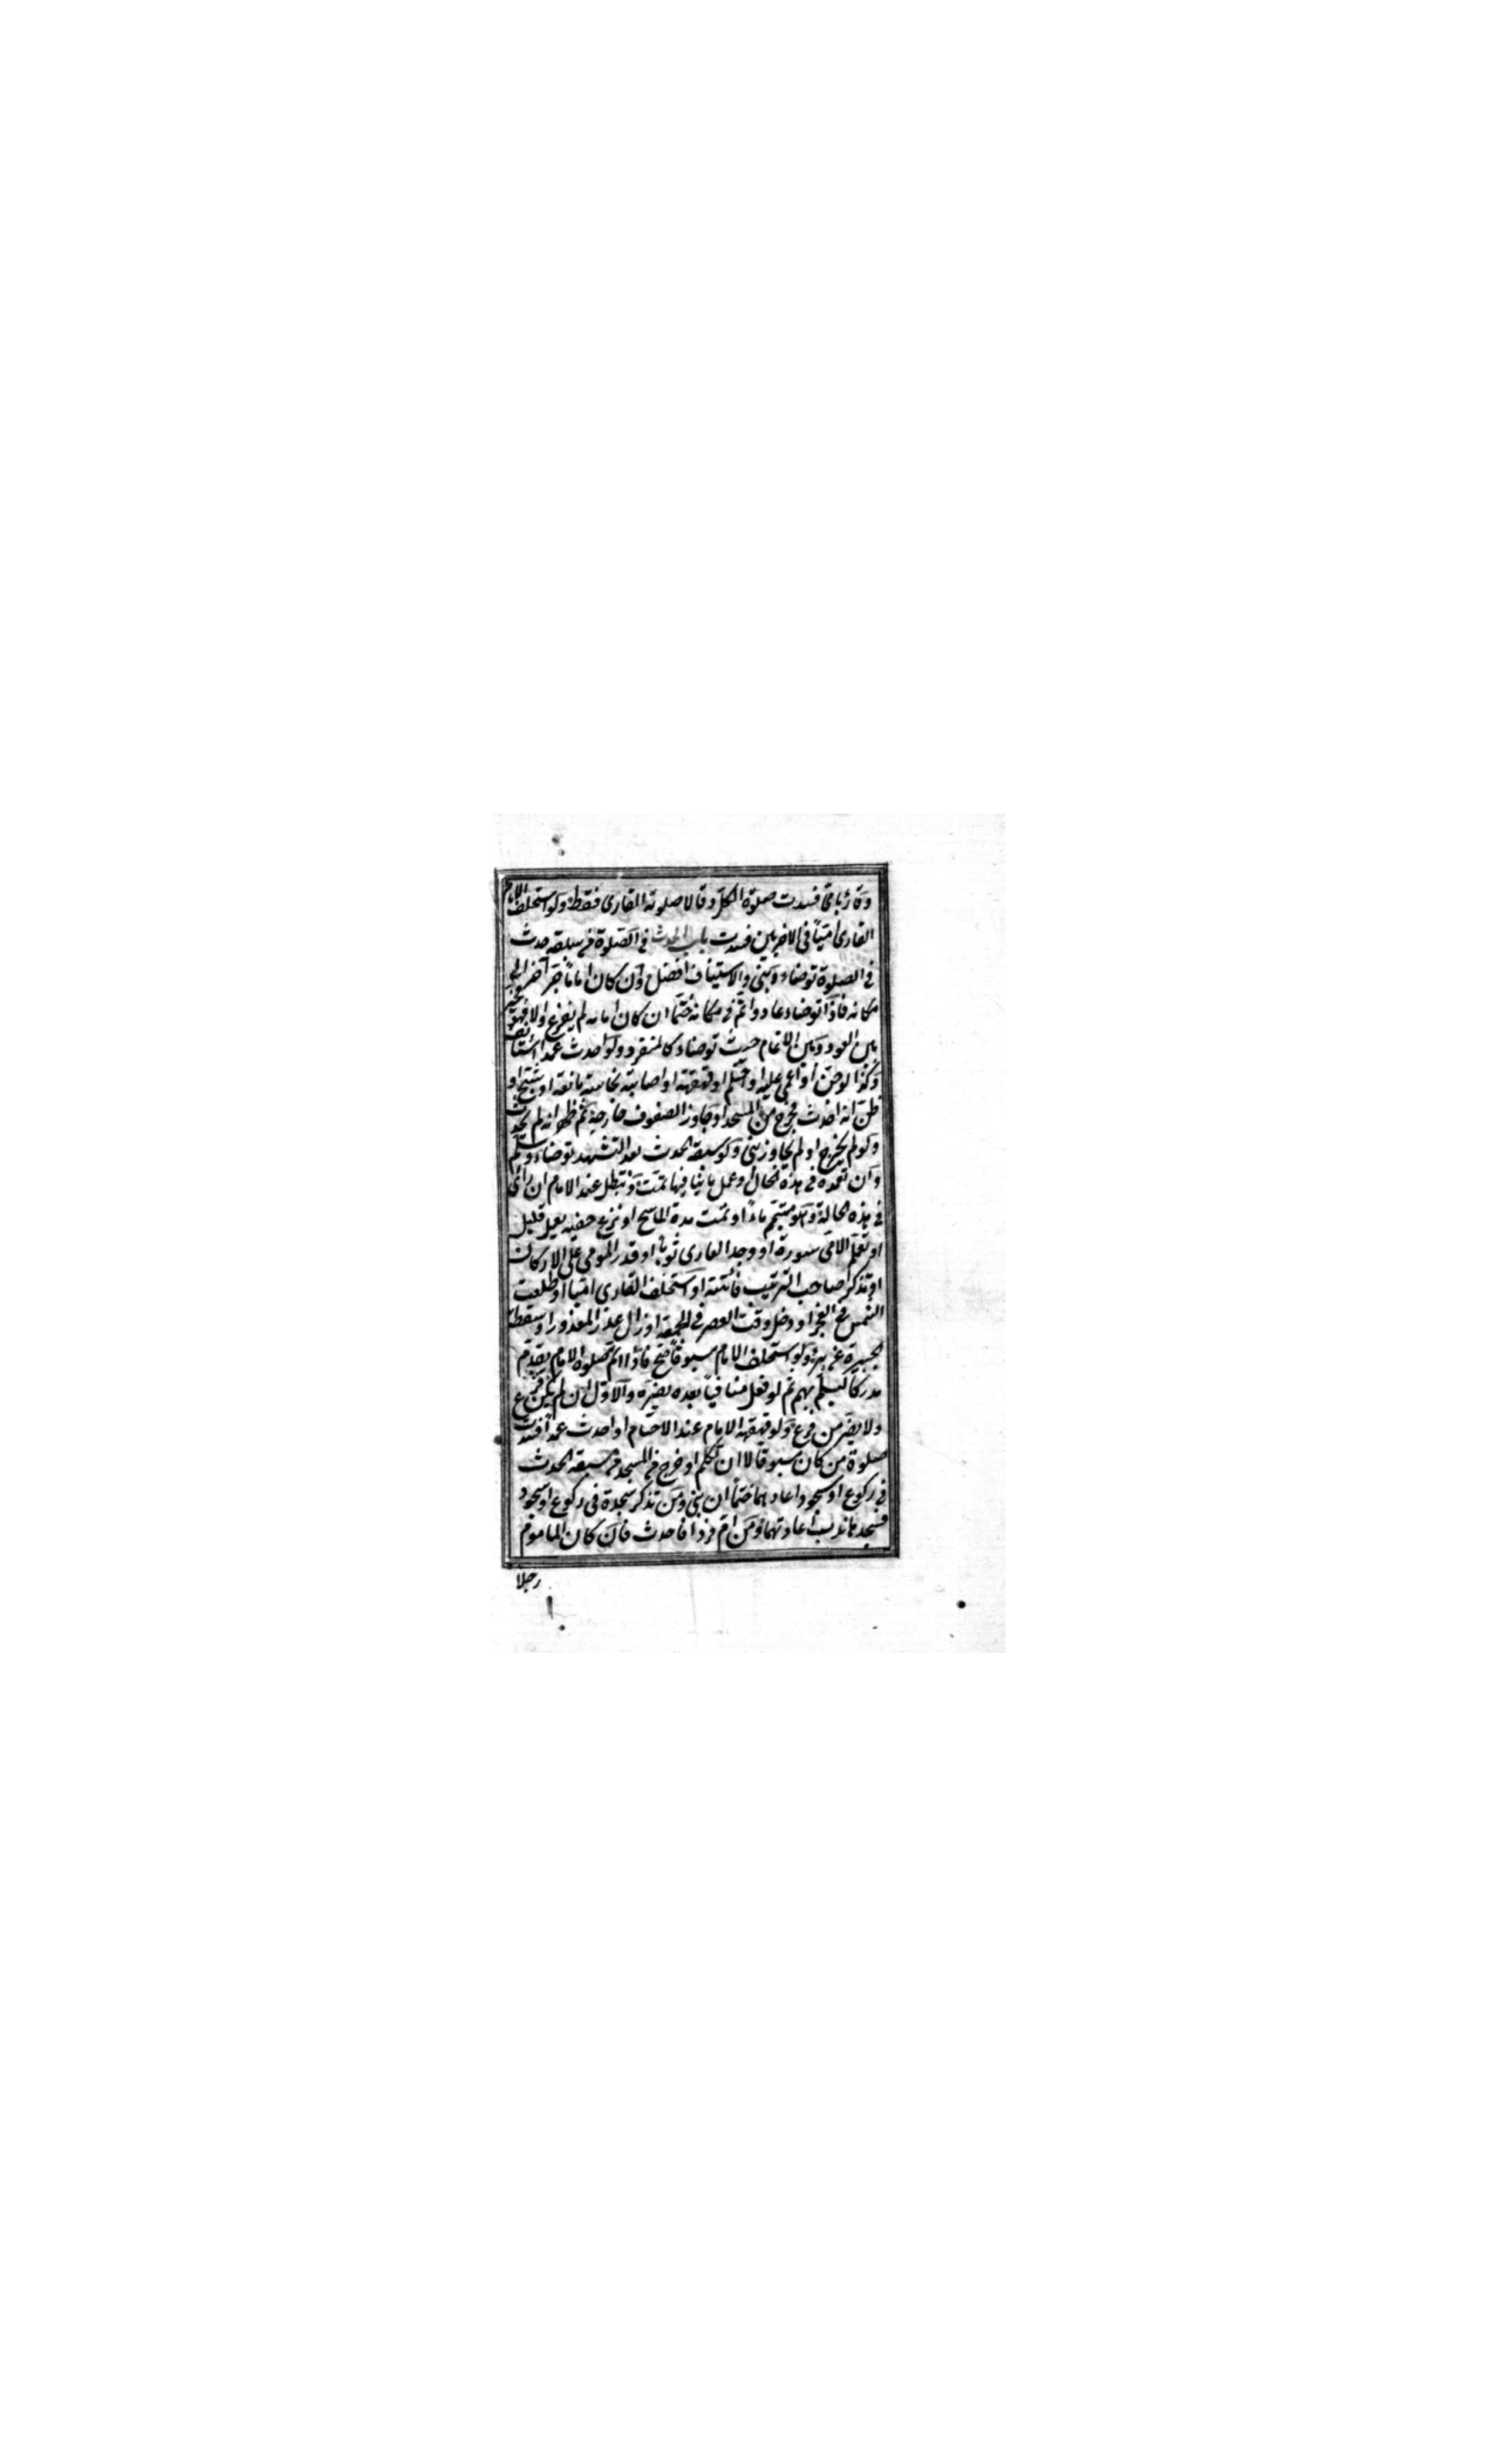 وقارئ بامي فسدت صلوة الكل وقالا صلوته القارى فقط ولو استخلف الامام
القارى اميا فى الاخريين فسدت باب الحدث فى الصلوة من سبقه حدث
فى الصلوة توضاء وبنى والاستيناف افضل وان كان اماما جر آخر الى
مكانه فاذا توضاء عاد واتم فى مكانه حتما ان كان امامه لم يفرغ والا فهو مخير
بين العود وبين الاتمام حيث توضاء كالمنفرد ولو احدث عمدا استأنف
وكذا لو جن او اغمى عليه او احتلم او قهقه او اصابته نجاسة مانعة او شج او
ظن انه احدث فخرج من المسجد او جاوز الصفوف خارجه ثم ظهر انه لم يحدث
ولو لم يخرج او لم يجاوز بنى ولو سبقه الحدث بعد التشهد توضاء وسلم
وان تعمده فى هذه الحال او عمل ما ينافيها تمت وتبطل عند الامام ان رأى
فى هذه الحالة وهو متيمم ماء او تمت مدة الماسح او نزع خفيه بعمل قليل
او تعلم الامى سورة او وجد العارى ثوبا او قدر المومى على الاركان
او تذكر صاحب الترتيب فائتة او استخلف القارى اميا او طلعت
الشمس فى الفجر او دخل وقت العصر فى الجمعة او زال عذر المعذور او سقطت
الجبيرة عن برء ولو استخلف الامام مسبوقا صح فاذا اتم صلوة الامام يقدم
مدركا ليسلم بهم ثم لو فعل منافيا بعده يضره والاول ان لم يكن فرغ
ولا يضر من فرغ ولو قهقه الامام عند الاختتام او احدث عمدا فسدت
صلوة من كان مسبوقا لا ان تكلم او خرج من المسجد ومن سبقه الحدث
فى ركوع او سجود اعادهما حتما ان بنى ومن تذكر سجدة فى ركوع او سجود
فسجدها ندب اعادتهما ومن ام فردا فاحدث فان كان الماموم
رجلا